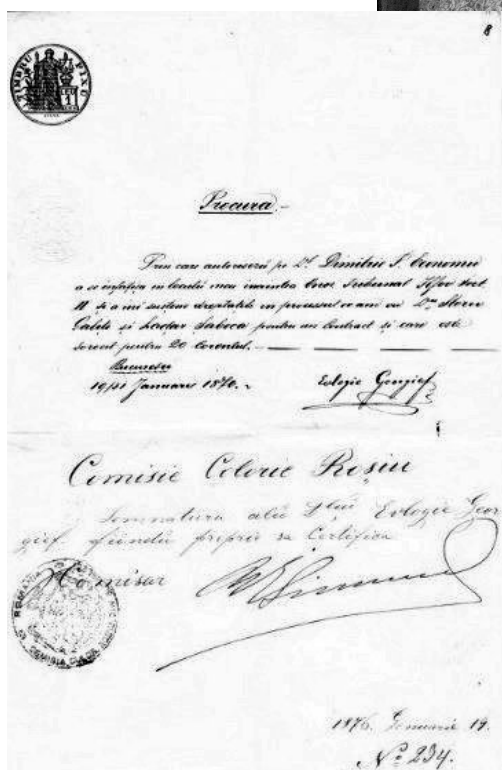 8
TIMBRU FIXU
LEU
1
Procura.-
Prin care autoriseză pe Dl Dimitrie S. Economu
a se înfăția in loculŭ meŭ inaintea Onor. Tribunal Ilfov Sect.
II si a'mi sustine dreptatile in processul ce am cu Dnii Storie
Galete si Lazar Saboca pentru un Contract si care este
Sorocit pentru 20 Corentul.-
Bucuresci
19/31 Januarie 1876.-
Evlogie Georgief
Comisie Colorie Roșiu
Semnatura aluĭ D-lui Evlogie Geor
gief fiindu proprie se Certifica
Comisar
ROMANIA
COMISIA
1876. Genuarie 19.
No 234.